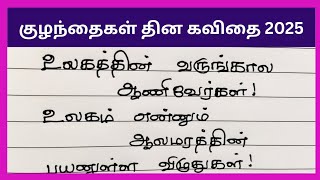 குழந்தைகள் தின கவிதை 2025
உலகத்தின் வருங்கால
ஆணிவேர்கள்!
உலகம் என்னும்
ஆலமரத்தின்
பயனுள்ள விழுதுகள்!